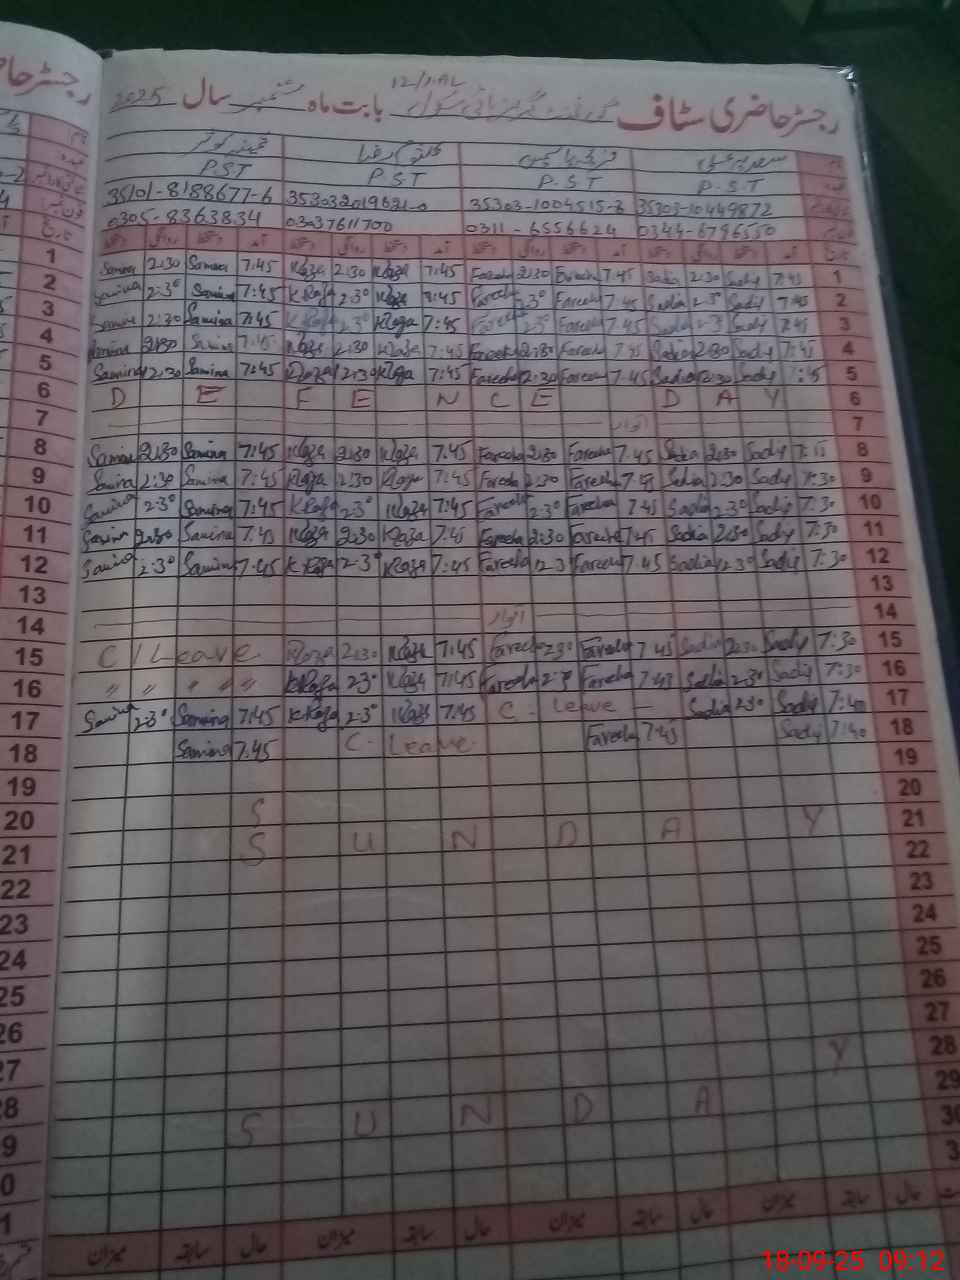 رجسٹر حاضری سٹاف گورنمنٹ گرلز ہائی سکول 12/1.AL بابت ماہ ستمبر سال 2025
نام سعدیہ فریحہ یاسمین کلثوم رضا ثمینہ کوثر
عہدہ P.S.T P.S.T P.S.T P.S.T
35303-10449872 35303-1004515- 353032019621-0 35101-8188677-6
0344-6796550 0311-6556624 03037611700 0305-8363834
تاریخ آمد دستخط روانگی دستخط آمد دستخط روانگی دستخط آمد دستخط روانگی دستخط آمد دستخط روانگی دستخط
1 Samina 2:30 Samina 7:45 KRaza 2:30 KRaza 7:45 Fareeha 2:30 Fareeha 7:45 Sadia 2:30 Sady 7:45 1
2 Samina 2:30 Samina 7:45 KRaza 2:30 KRaza 7:45 Fareeha 2:30 Fareeha 7:45 Sadia 2:30 Sady 7:45 2
3 Samina 2:30 Samina 7:45 KRaza 2:30 KRaza 7:45 Fareeha 2:30 Fareeha 7:45 Sadia 2:30 Sady 7:45 3
4 Samina 2:30 Samina 7:45 KRaza 2:30 KRaza 7:45 Fareeha 2:30 Fareeha 7:45 Sadia 2:30 Sady 7:45 4
5 Samina 2:30 Samina 7:45 KRaza 2:30 KRaza 7:45 Fareeha 2:30 Fareeha 7:45 Sadia 2:30 Sady 7:45 5
6 D E F E N C E D A Y 6
7 اتوار 7
8 Samina 2:30 Samina 7:45 KRaza 2:30 KRaza 7:45 Fareeha 2:30 Fareeha 7:45 Sadia 2:30 Sady 8
9 Samina 2:30 Samina 7:45 KRaza 2:30 KRaza 7:45 Fareeha 2:30 Fareeha 7:45 Sadia 2:30 Sady 7:30 9
10 Samina 2:30 Samina 7:45 KRaza 2:30 KRaza 7:45 Fareeha 2:30 Fareeha 7:45 Sadia 2:30 Sady 7:30 10
11 Samina 2:30 Samina 7:45 KRaza 2:30 KRaza 7:45 Fareeha 2:30 Fareeha 7:45 Sadia 2:30 Sady 7:30 11
12 Samina 2:30 Samina 7:45 KRaza 2:30 KRaza 7:45 Fareeha 2:30 Fareeha 7:45 Sadia 2:30 Sady 7:30 12
13 13
14 اتوار 14
15 C/Leave KRaza 2:30 KRaza 7:45 Fareeha 2:30 Fareeha 7:45 Sadia 2:30 Sady 7:30 15
16 〃 〃 〃 〃 〃 KRaza 2:30 KRaza 7:45 Fareeha 2:30 Fareeha 7:45 Sadia 2:30 Sady 7:30 16
17 Samina 2:30 Samina 7:45 KRaza 2:30 KRaza 7:45 C - Leave - Sadia 2:30 Sady 7:40 17
18 Samina 7:45 C - Leave Fareeha 7:45 Sady 7:40 18
19 19
20 S 20
21 S U N D A Y 21
22 22
23 23
24 24
25 25
26 26
27 27
28 S U N D A Y 28
29 29
30 30
میزان سابقہ حال میزان سابقہ حال میزان سابقہ حال میزان سابقہ حال
18-09-25 09:12